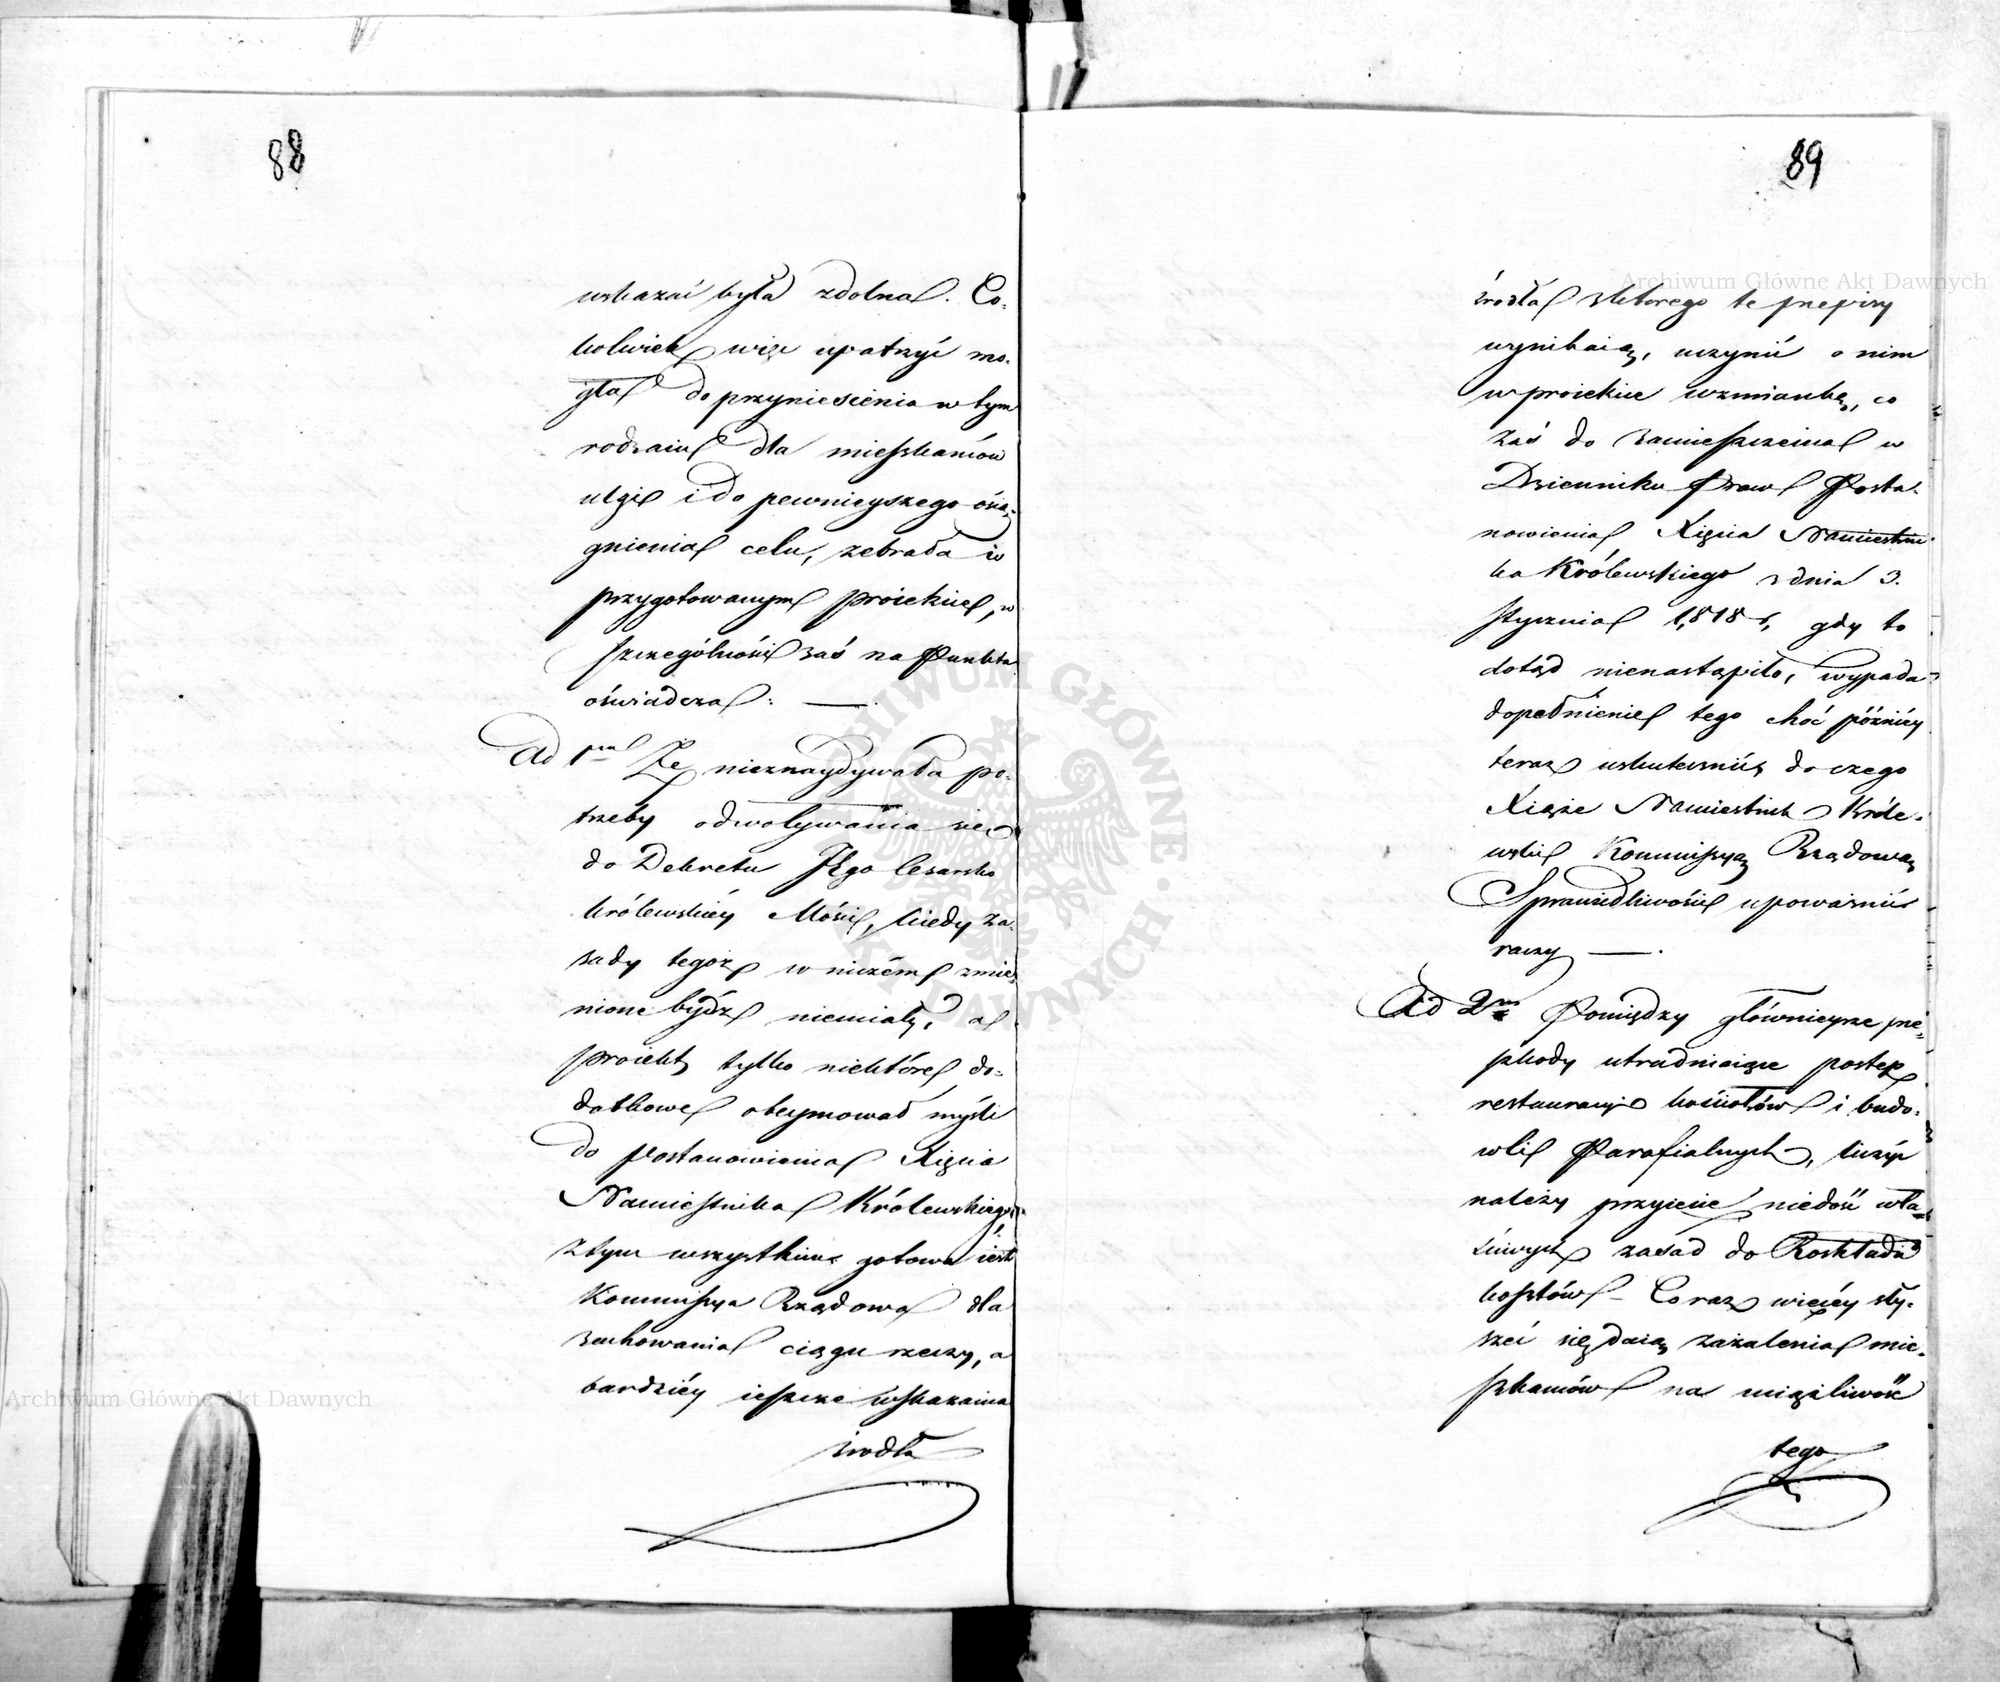 88
wskazać była zdolna. Co-
kolwiek więc upatrzyć mo-
gła do przyniesienia w tym
rodzaiu dla mieszkańców
ulgi i do pewnieyszego osią-
gnienia celu, zebrała w
przygotowanym proiekcie, w
szczególności zaś na Punkta
oświadcza: —.
Ad 1m Że nieznaydywała po-
trzeby odwoływania się
do Dekretu Jego Cesarsko
królewskiéy Mości, kiedy za-
sady tegoż w niczém zmie-
nione bydź niemiały, a
proiekt tylko niektóre do-
datkowe obeymował myśli
do Postanowienia Xięcia
Namiestnika Królewskiego,
z tym wszystkim gotowa iest
Kommissya Rządowa dla
zachowania ciągu rzeczy, a
bardziéy ieszcze wskazania
źrodła
89
źrodła z ktorego te przepisy
wynikaią, uczynić o nim
w proiekcie wzmiankę, co
zaś do zamieszczenia w
Dzienniku Praw Posta-
nowienia Xięcia Namiestni-
ka Królewskiego z dnia 3.
Stycznia 1,818 r, gdy to
dotąd nienastąpiło, wypada
dopełnienie tego choć późniéy
teraz uskutecznić, do czego
Xiąże Namiestnik Króle-
wski Kommissyą Rządową
Sprawiedliwości upoważnić
raczy —.
Ad 2m Pomiędzy główneysze prze-
szkody utrudniaiące postęp
restauracyi kościołów i budo-
wli Parafialnych, liczyć
należy przyięcie niedość wła-
ściwych zasad do Rozkładu
kosztów – Coraz więcéy sły-
szeć się daią zażalenia mie-
szkańców na uciążliwość
tego
Archiwum Główne Akt Dawnych
Archiwum Główne Akt Dawnych
ARCHIWUM GŁÓWNE AKT DAWNYCH